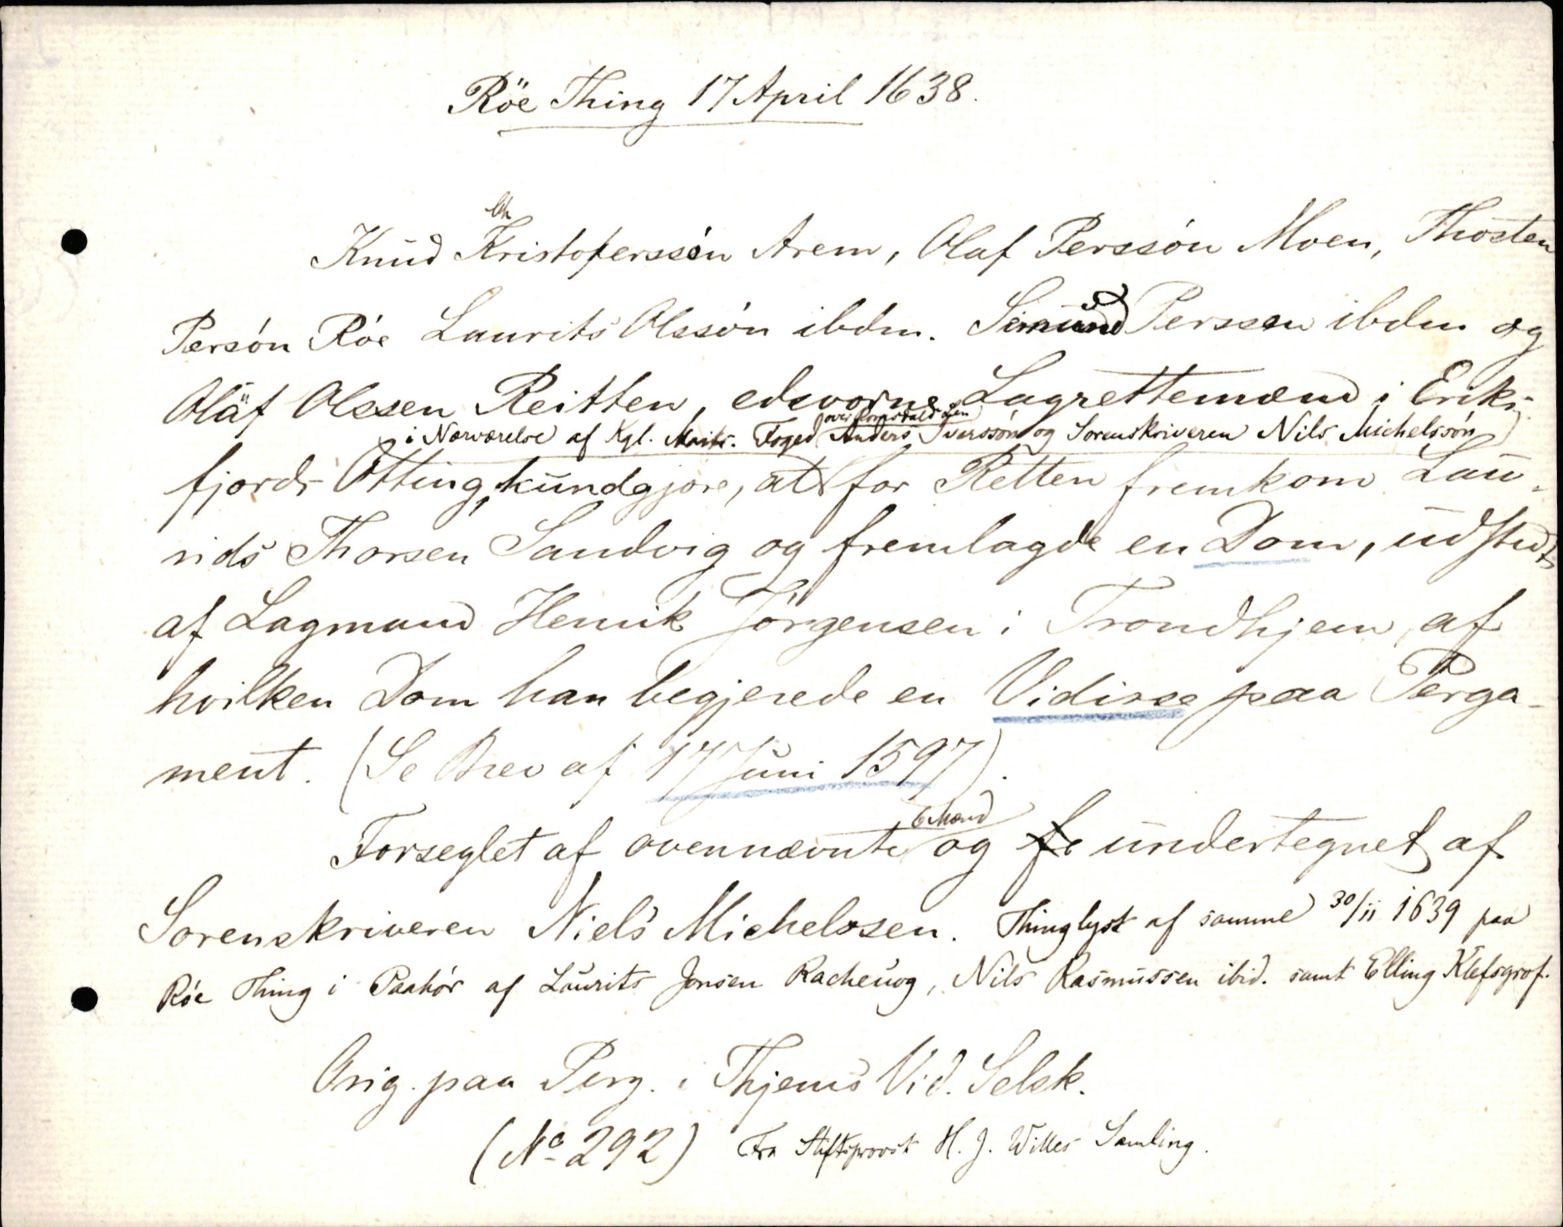 Röe Thing 17 April 1638.
Ch
Knud Kristoferssón Arem, Olaf Perssón Moen, Thosten
Persón Róe Laurits Olssón ibdm. Simund Perssen ibdm og
Olaf Olssen Reitten, edsvorne Lagrettemænd i Eriks-
over Romsdals Len
i Nærværelse af Kgl. Maits. Foged Anders Iverssón og Sorenskriveren Nils Michelssón
fjords Otting, kundgjøre, at for Retten fremkom Lau-
rids Thorsen Sandvig og fremlagde en Dom, udstedt
af Lagmand Henrik Jörgensen i Trondhjem, af
hvilken Dom han begjerede en Vidisse paa Perga-
ment. (Se Brev af 17 Juni 1597).
6 Mænd
Forseglet af ovennævnte og fe undertegnet af
Sorenskriveren Niels Michelssen. Thinglyst af samme 30/11 1639 paa
Róe Thing i Paahór af Laurits Jonsen, Nils Rasmussen ibid. samt Elling
Orig. paa Perg. i Thjems Vid. Selsk.
(No 292) Fra Stiftsprovst H. J. Willes Samling.